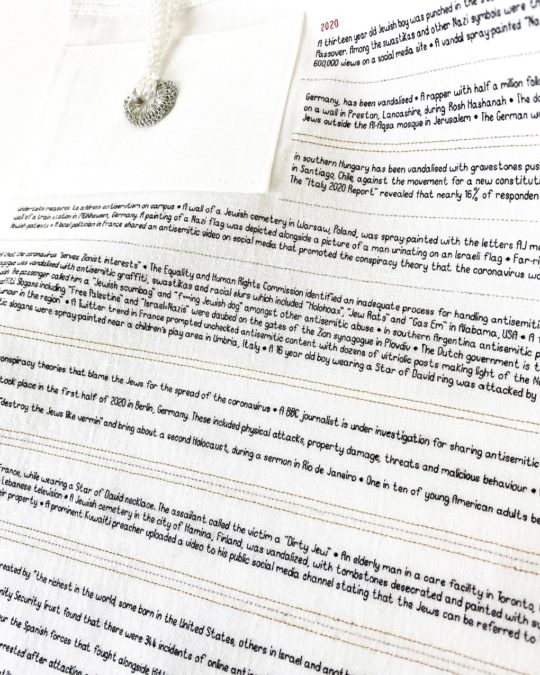 2020
A thirteen year old Jewish boy was punched in the
Passover. Among the swastikas and other Nazi symbols were
600,000 views on a social media site • A vandal spray-painted "Na
Germany, has been vandalised • A rapper with half a million
on a wall in Preston, Lancashire, during Rosh Hashanah • The
Jews outside the Al-Aqsa mosque in Jerusalem • The German
in southern Hungary has been vandalised with gravestones
in Santiago, Chile, against the movement for a new
The "Italy 2020 Report" revealed that nearly 16% of
undertake measures to address antisemitism on campus • A wall of a Jewish cemetery in Warsaw, Poland, was spray-painted with the letters AJ
wall of a train station in Mühlhausen, Germany. A painting of a Nazi flag was depicted alongside a picture of a man urinating on an Israeli flag •
Jewish patients • A local politician in France shared an antisemitic video on social media that promoted the conspiracy theory that the coronavirus
that the coronavirus "serves Zionist interests" • The Equality and Human Rights Commission identified an inadequate process for handling
was vandalised with antisemitic graffiti, swastikas and racial slurs which included "Holohoax", "Jew Rats" and "Gas Em" in Alabama, USA •
the passenger called him a "Jewish scumbag" and "f***ing Jewish dog" amongst other antisemitic abuse • In southern Argentina antisemitic
Slogans including "Free Palestine" and "Israel=Nazis" were daubed on the gates of the Zion synagogue in Plovdiv • The Dutch government is
in the region" • A Twitter trend in France prompted unchecked antisemitic content with dozens of vitriolic posts making light of the
slogans were spray painted near a children's play area in Umbria, Italy • A 16 year old boy wearing a Star of David ring was attacked by
conspiracy theories that blame the Jews for the spread of the coronavirus • A BBC journalist is under investigation for sharing antisemitic
took place in the first half of 2020 in Berlin, Germany. These included physical attacks, property damage, threats and malicious behaviour •
"destroy the Jews like vermin" and bring about a second Holocaust, during a sermon in Rio de Janeiro • One in ten of young American adults
France, while wearing a Star of David necklace. The assailant called the victim a "Dirty Jew" • An elderly man in a care facility in Toronto,
Lebanese television • A Jewish cemetery in the city of Hamina, Finland, was vandalized, with tombstones desecrated and painted with
property • A prominent Kuwaiti preacher uploaded a video to his public social media channel stating that the Jews can be referred to
created by "the richest in the world, some born in the United States, others in Israel and
Security Trust found that there were 344 incidents of online
the Spanish forces that fought alongside
arrested after attacking